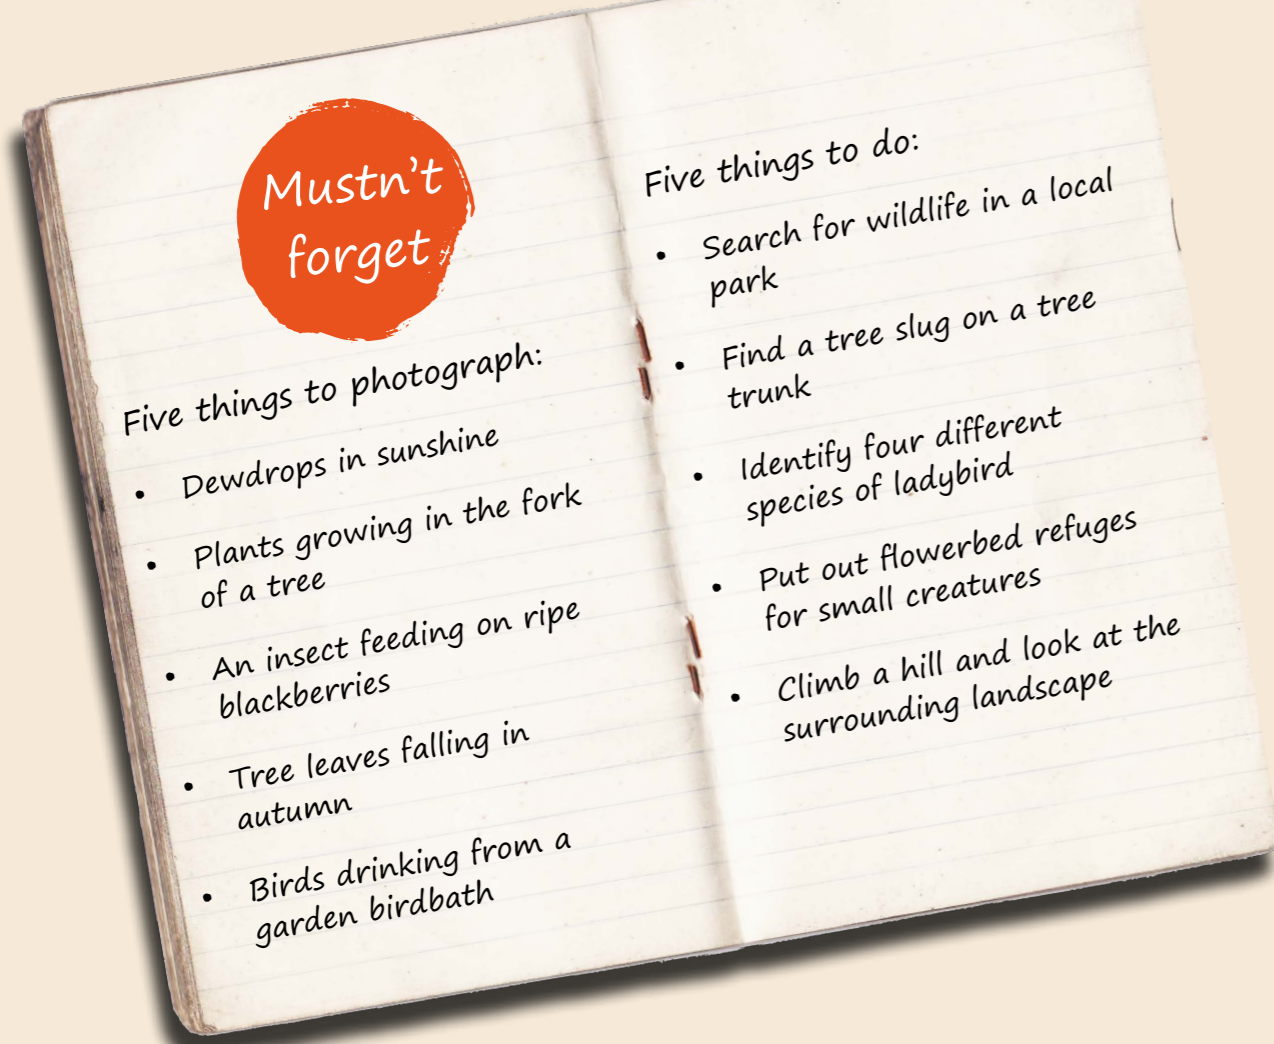 Mustn’t
forget
Five things to photograph:
• Dewdrops in sunshine
• Plants growing in the fork
of a tree
• An insect feeding on ripe
blackberries
• Tree leaves falling in
autumn
• Birds drinking from a
garden birdbath
Five things to do:
• Search for wildlife in a local
park
• Find a tree slug on a tree
trunk
• Identify four different
species of ladybird
• Put out flowerbed refuges
for small creatures
• Climb a hill and look at the
surrounding landscape